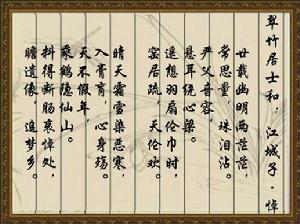 翠竹居士和：江城子·悼
廿载幽明两茫茫，
常思量，珠泪沾。
严父音容，
悬耳绕心梁。
遥想羽扇伦巾时，
窑居疏，天伦欢。
晴天霜雪染恶寒，
入膏肓，心身殇。
天不假年，
乘鹤隐仙山。
抖得断肠衷悼处，
瞻遗像，追梦乡。